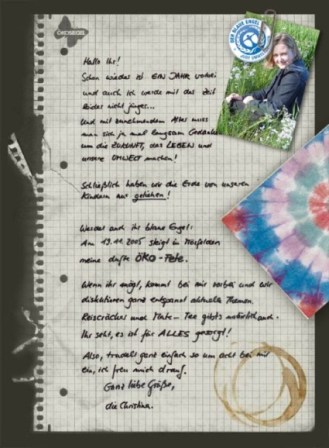 ÖKOSIEGEL
DER BLAUE ENGEL
Hallo Ihr!
Schon wieder ist EIN JAHR vorbei
und auch ich werde mit der Zeit
leider nicht jünger...
Und mit zunehmendem Alter muss
man sich ja mal langsam Gedanken
um die ZUKUNFT, das LEBEN und
unsere UMWELT machen!
Schließlich haben wir die Erde von unseren
Kindern nur geliehen!
Werdet auch ihr blaue Engel:
Am 19.11.2005 steigt in
meine dufte ÖKO-Fete.
Wenn ihr mögt, kommt bei mir vorbei und wir
diskutieren ganz entspannt aktuelle Themen.
Reiscräcker und Mate-Tee gibt's natürlich auch.
Ihr seht, es ist für ALLES gesorgt!
Also, trudelt ganz einfach so um acht bei mir
ein, ich freu mich drauf.
Ganz liebe Grüße,
die Christina.